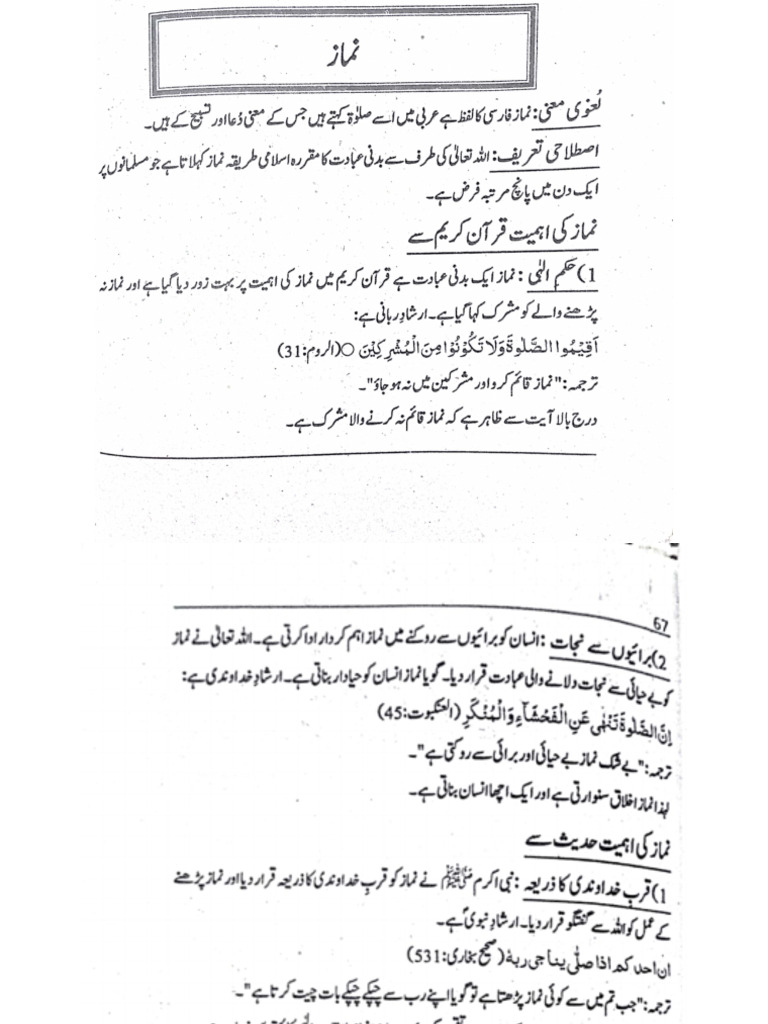 نماز
لُغوی معنی: نماز فارسی کا لفظ ہے عربی میں اسے صلوٰۃ کہتے ہیں جس کے معنی دُعا اور تسبیح کے ہیں۔
اصطلاحی تعریف: اللہ تعالیٰ کی طرف سے بدنی عبادت کا مقررہ اسلامی طریقہ نماز کہلاتا ہے جو مسلمانوں پر
ایک دن میں پانچ مرتبہ فرض ہے۔
نماز کی اہمیت قرآن کریم سے
1) حکمِ الٰہی : نماز ایک بدنی عبادت ہے قرآن کریم میں نماز کی اہمیت پر بہت زور دیا گیا ہے اور نماز نہ
پڑھنے والے کو مشرک کہا گیا ہے۔ ارشادِ ربانی ہے:
اَقِيْمُوا الصَّلٰوةَ وَلَا تَكُوْنُوْا مِنَ الْمُشْرِكِيْنَ ○ (الروم:31)
ترجمہ: "نماز قائم کرو اور مشرکین میں نہ ہو جاؤ"۔
درج بالا آیت سے ظاہر ہے کہ نماز قائم نہ کرنے والا مشرک ہے۔
67
2) برائیوں سے نجات : انسان کو برائیوں سے روکنے میں نماز اہم کردار ادا کرتی ہے۔ اللہ تعالیٰ نے نماز
کو بے حیائی سے نجات دلانے والی عبادت قرار دیا۔ گویا نماز انسان کو حیادار بناتی ہے۔ ارشادِ خداوندی ہے:
اِنَّ الصَّلٰوةَ تَنْهٰى عَنِ الْفَحْشَآءِ وَالْمُنْكَرِ (العنکبوت:45)
ترجمہ: "بے شک نماز بے حیائی اور برائی سے روکتی ہے"۔
لہٰذا نماز اخلاق سنوارتی ہے اور ایک اچھا انسان بناتی ہے۔
نماز کی اہمیت حدیث سے
1) قربِ خداوندی کا ذریعہ : نبی اکرم ﷺ نے نماز کو قربِ خداوندی کا ذریعہ قرار دیا اور نماز پڑھنے
کے عمل کو اللہ سے گفتگو قرار دیا۔ ارشادِ نبوی ہے۔
ان احدکم اذا صلّٰی یناجی ربه (صحیح بخاری:531)
ترجمہ: "جب تم میں سے کوئی نماز پڑھتا ہے تو گویا اپنے رب سے چپکے چپکے بات چیت کرتا ہے"۔